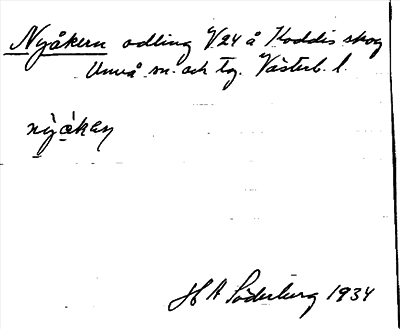 Nyåkern odling V24 å Koddis skog
Umeå sn. och tg. Västerb. l.
nỳákan
H A Söderberg 1934